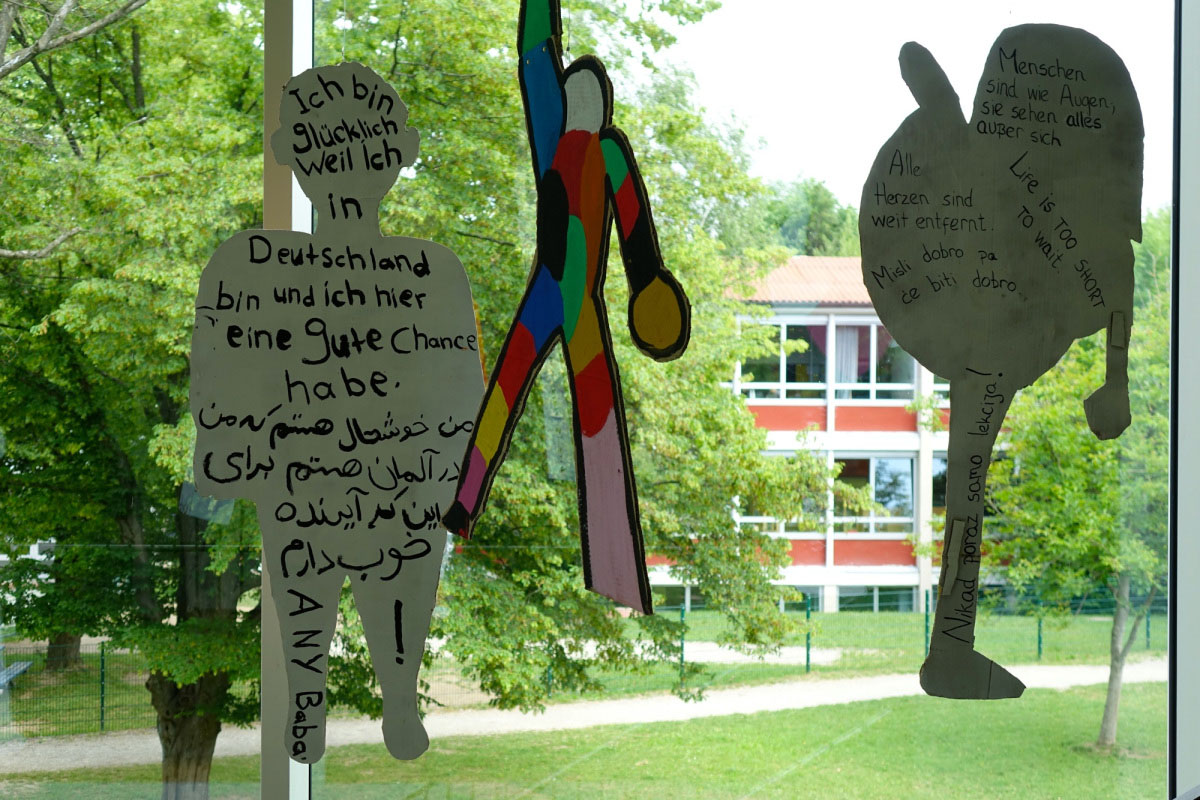 Ich bin
glücklich
weil ich
in
Deutschland
bin und ich hier
eine gute Chance
habe.
من خوشحال هستم که من
در آلمان هستم برای
این که آینده
خوب دارم
!
ANY Baba.
Menschen
sind wie Augen,
sie sehen alles
außer sich
Alle
Herzen sind
weit entfernt.
Life is TOO SHORT
TO wait.
Misli dobro pa
će biti dobro.
Nikad poraz samo lekcija!